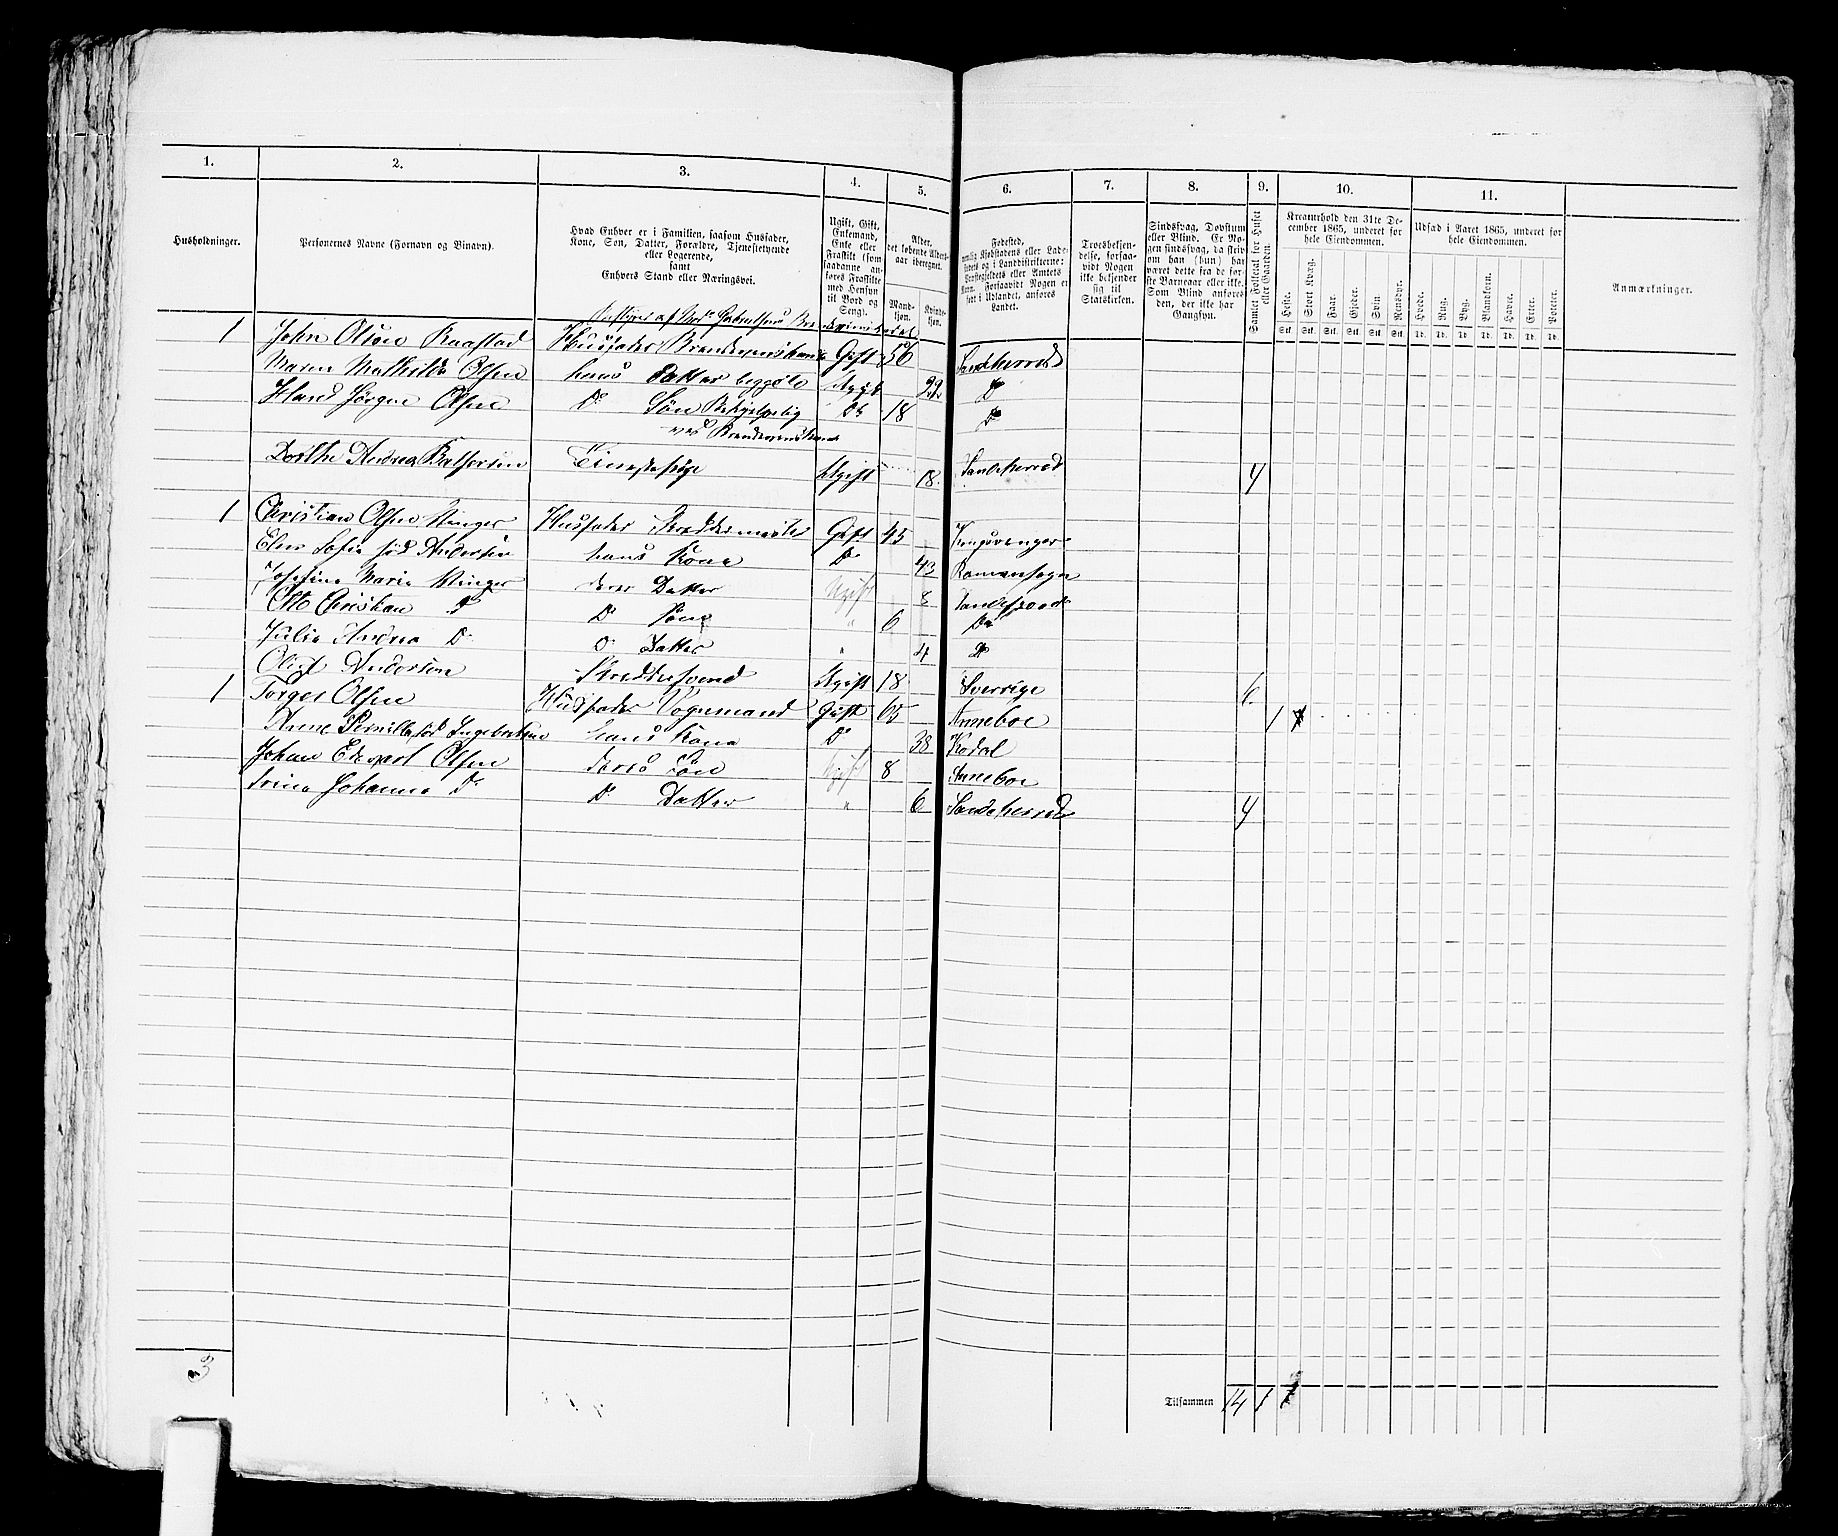 1. 2. 3. 4. 5. 6. 7. 8. 9. 10. 11.
Husholdninger.
Personernes Navne (Fornavn og Binavn).
Hvad Enhver er i Familien, saasom Husfader, Kone, Søn, Datter, Forældre, Tjenestetyende eller Logerende, samt Enhvers Stand eller Næringsvei.
Ugift, Gift, Enkemand, Enke eller Fraskilt (som saadanne anføres Fraskilte med Hensyn til Bord og Seng).
Alder, det løbende Alders-aar iberegnet.
Mand-kjøn. Kvinde-kjøn.
Fødested,
nemlig Kjøbstadens eller Ladestedets og i Landdistrikterne: Præstegjeldets eller Amtets Navn. Forsaavidt Nogen er født i Udlandet, anføres Landet.
Troesbekjendelse, forsaavidt Nogen ikke bekjender sig til Statskirken.
Sindssvag, Døvstum eller Blind. Er Nogen sindssvag, da skrives om han (hun) har været dette fra de første Barneaar eller ikke. Som Blind anføres den, der ikke har Gangsyn.
Samlet Folketal for Huset eller Gaarden.
Kreaturhold den 31te December 1865, underet for hele Eiendommen.
Heste. Stort Kvæg. Faar. Gjeder. Svin. Rensdyr.
Stk. Stk. Stk. Stk. Stk. Stk.
Udsæd i Aaret 1865, underet for hele Eiendommen.
Hvede. Rug. Byg. Blandkorn. Havre. Erter. Poteter.
Td. Td. Td. Td. Td. Td. Td.
Anmærkninger.
1 John Olsen Raastad Husfader Gift 56 Sandeherred
Maren Mathilde Olsen hans Datter Ugift 22 Do
Hans Jørgen Olsen Do Søn Do 18 Do
ved
Dorthe Andrea Ugift 18 Sandeherred 4
1 Christian Olsen Vinger Husfader Skreddermester Gift 45 Kongsvinger
Elen Sofie fød Andersen hans Kone Do 43
Josefine Marie Vinger deres Datter Ugift 8 Sandefjord
Otto Christian Do Do Søn " 6 Do
Julie Andrea Do D Datter " 4 Do
Andersen Skreddersvend Ugift 18 Sverrige 6
1 Torger Olsen Husfader Vognmand Gift 65 Anneboe 1
Anne Pernille fød Ingebretsen hans Kone Do 38 Kodal
Johan Edvart Olsen deres Søn Ugift 8 Anneboe
Johanne Do Do Datter " 6 Sandeherred 4
3
Tilsammen 14 1